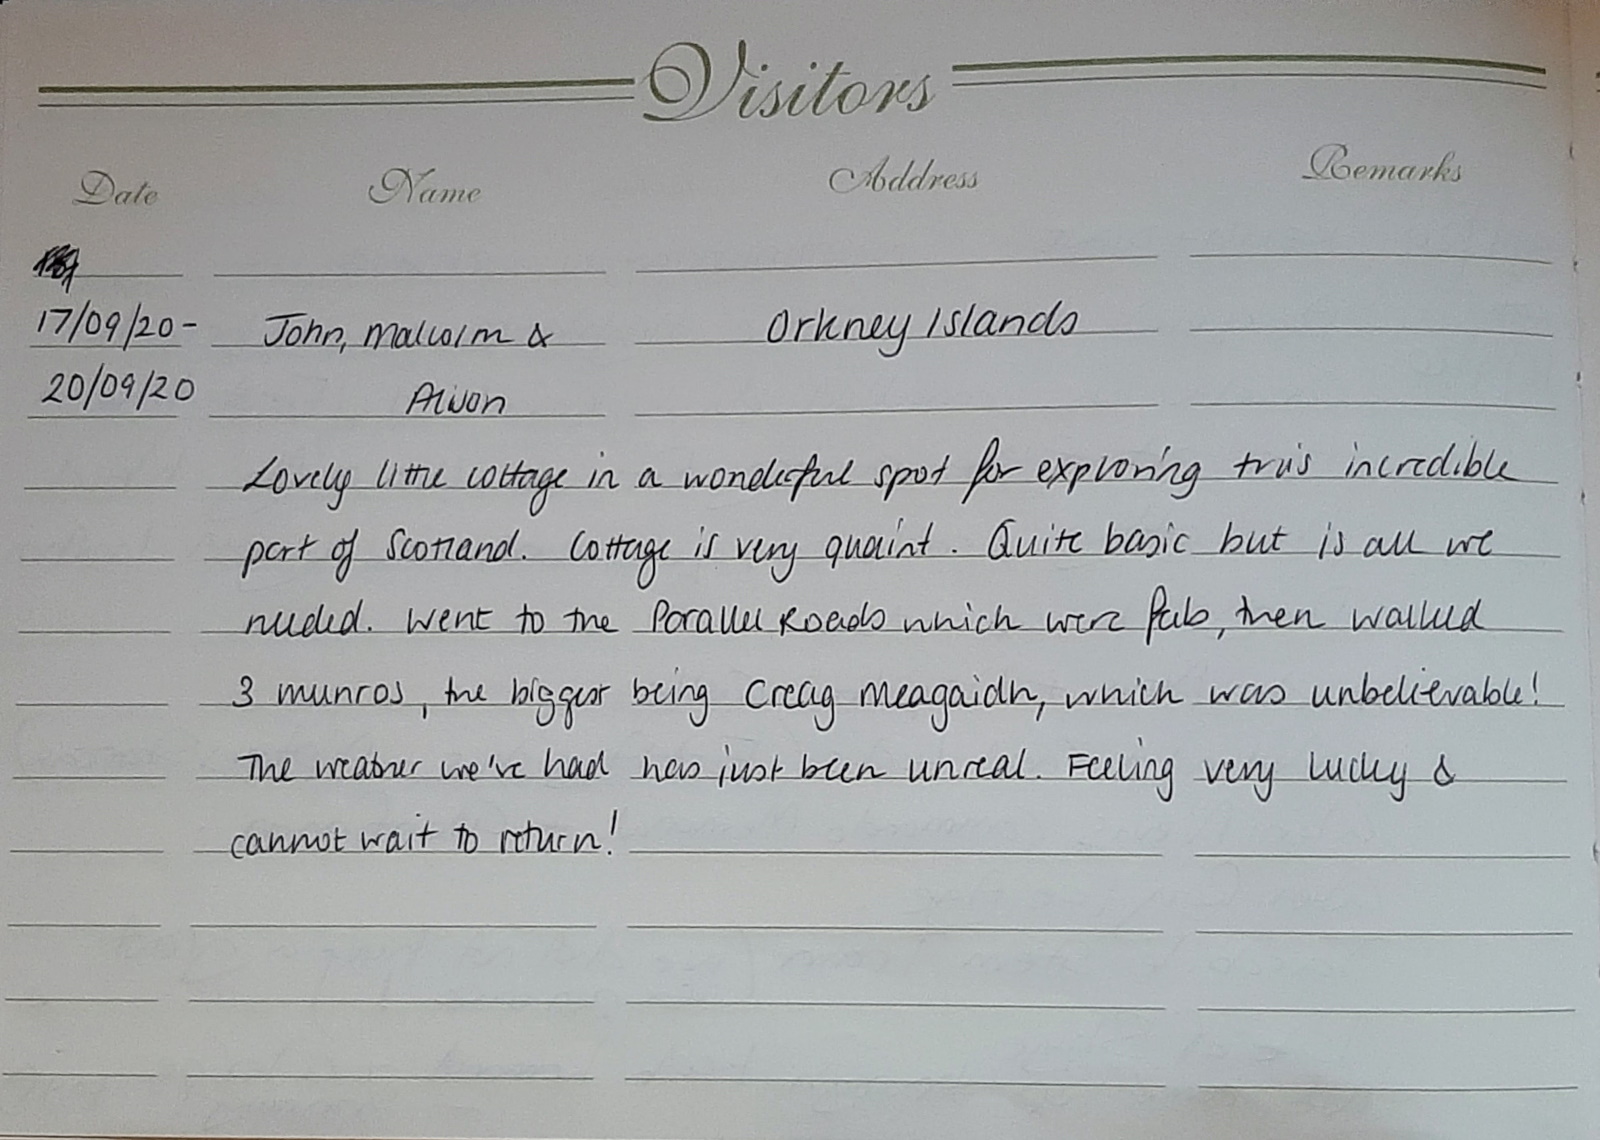 Visitors
Date Name Address Remarks
17/09/20- John, Malcolm & Orkney Islands
20/09/20 Alison
Lovely little cottage in a wonderful spot for exploring this incredible
part of Scotland. Cottage is very quaint. Quite basic but is all we
needed. Went to the Parallel Roads which were fab, then walked
3 munros, the biggest being Creag Meagaidh, which was unbelievable!
The weather we've had has just been unreal. Feeling very lucky &
cannot wait to return!